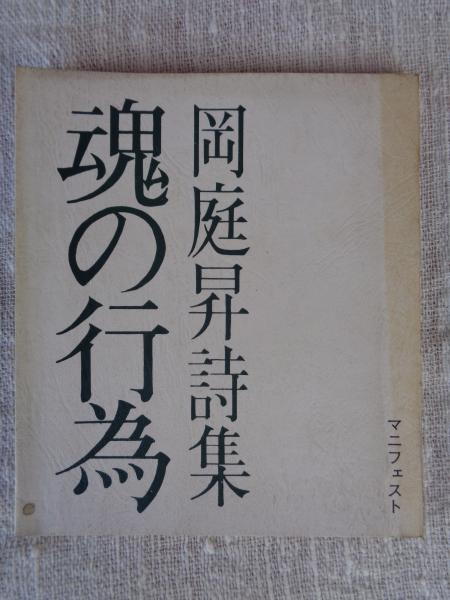 マニフェスト
岡庭昇詩集
魂の行為